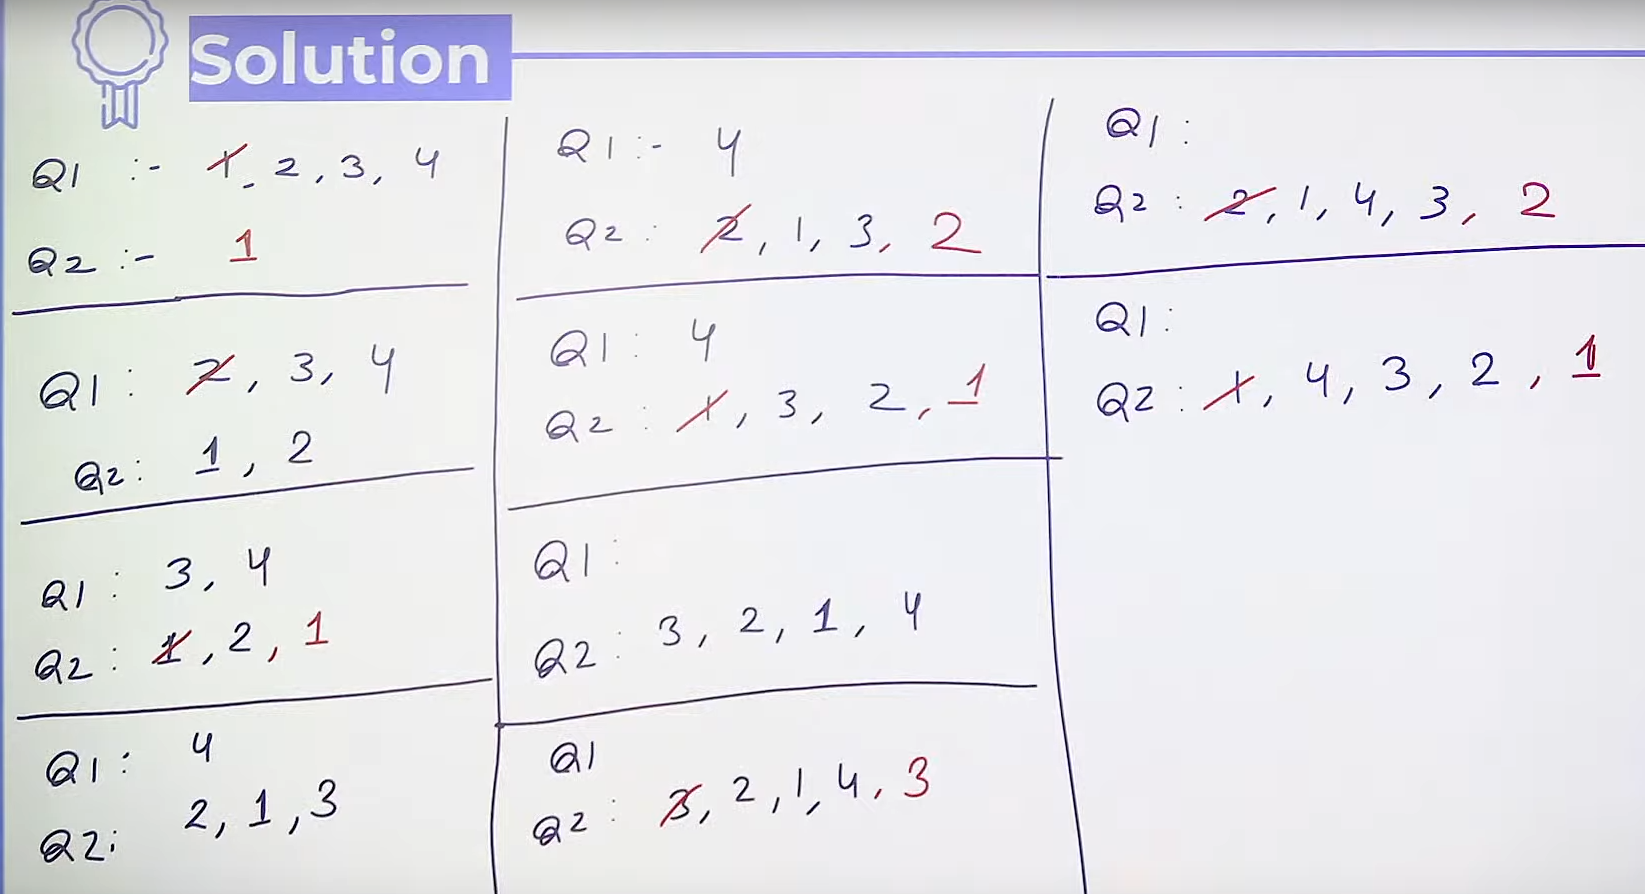 Solution
Q1 :- 1, 2, 3, 4
Q2 :- 1
Q1 : 2, 3, 4
Q2: 1, 2
Q1 : 3, 4
Q2 : 1, 2, 1
Q1 : 4
Q2: 2, 1, 3
Q1 :- 4
Q2 : 2, 1, 3, 2
Q1 : 4
Q2 : 1, 3, 2, 1
Q1 :
Q2 : 3, 2, 1, 4
Q1
Q2 : 3, 2, 1, 4, 3
Q1 :
Q2 : 2, 1, 4, 3, 2
Q1 :
Q2 : 1, 4, 3, 2, 1